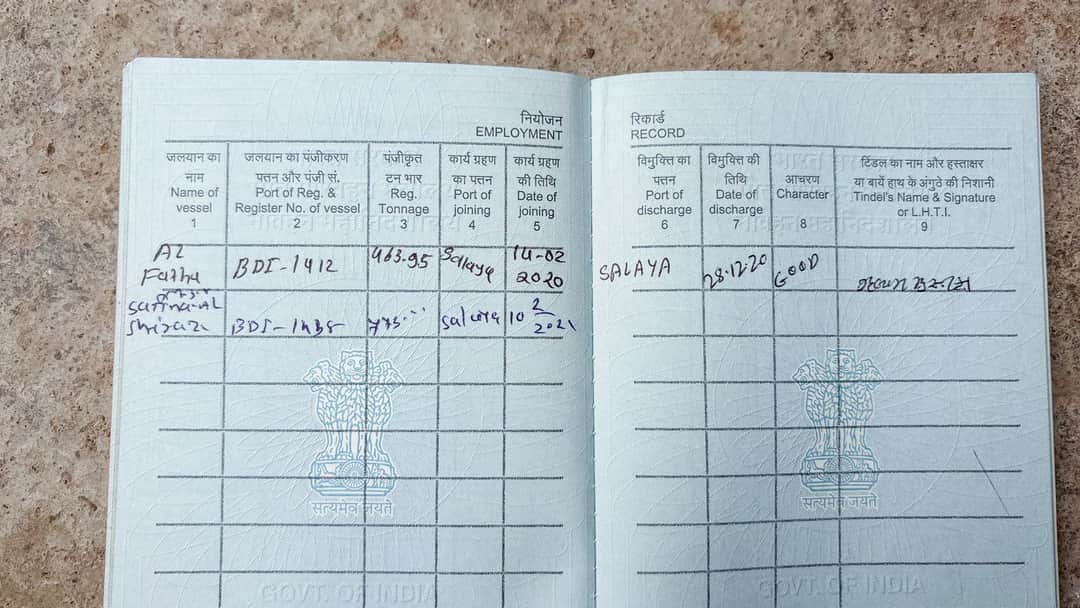 नियोजन
EMPLOYMENT
जलयान का
नाम
Name of
vessel
1
जलयान का पंजीकरण
पत्तन और पंजी सं.
Port of Reg. &
Register No. of vessel
2
पंजीकृत
टन भार
Reg.
Tonnage
3
कार्य ग्रहण
का पत्तन
Port of
joining
4
कार्य ग्रहण
की तिथि
Date of
joining
5
AL
Fatha
BDI-1412
463.95
Salaya
14-02
2020
AL
BDI-1438
775
Salaya
10 2
2021
सत्यमेव जयते
GOVT. OF INDIA
रिकार्ड
RECORD
विमुक्ति का
पत्तन
Port of
discharge
6
विमुक्ति की
तिथि
Date of
discharge
7
आचरण
Character
8
टिंडल का नाम और हस्ताक्षर
या बायें हाथ के अंगुठे की निशानी
Tindel's Name & Signature
or L.H.T.I.
9
SALAYA
28.12.20
GOOD
सत्यमेव जयते
GOVT. OF INDIA